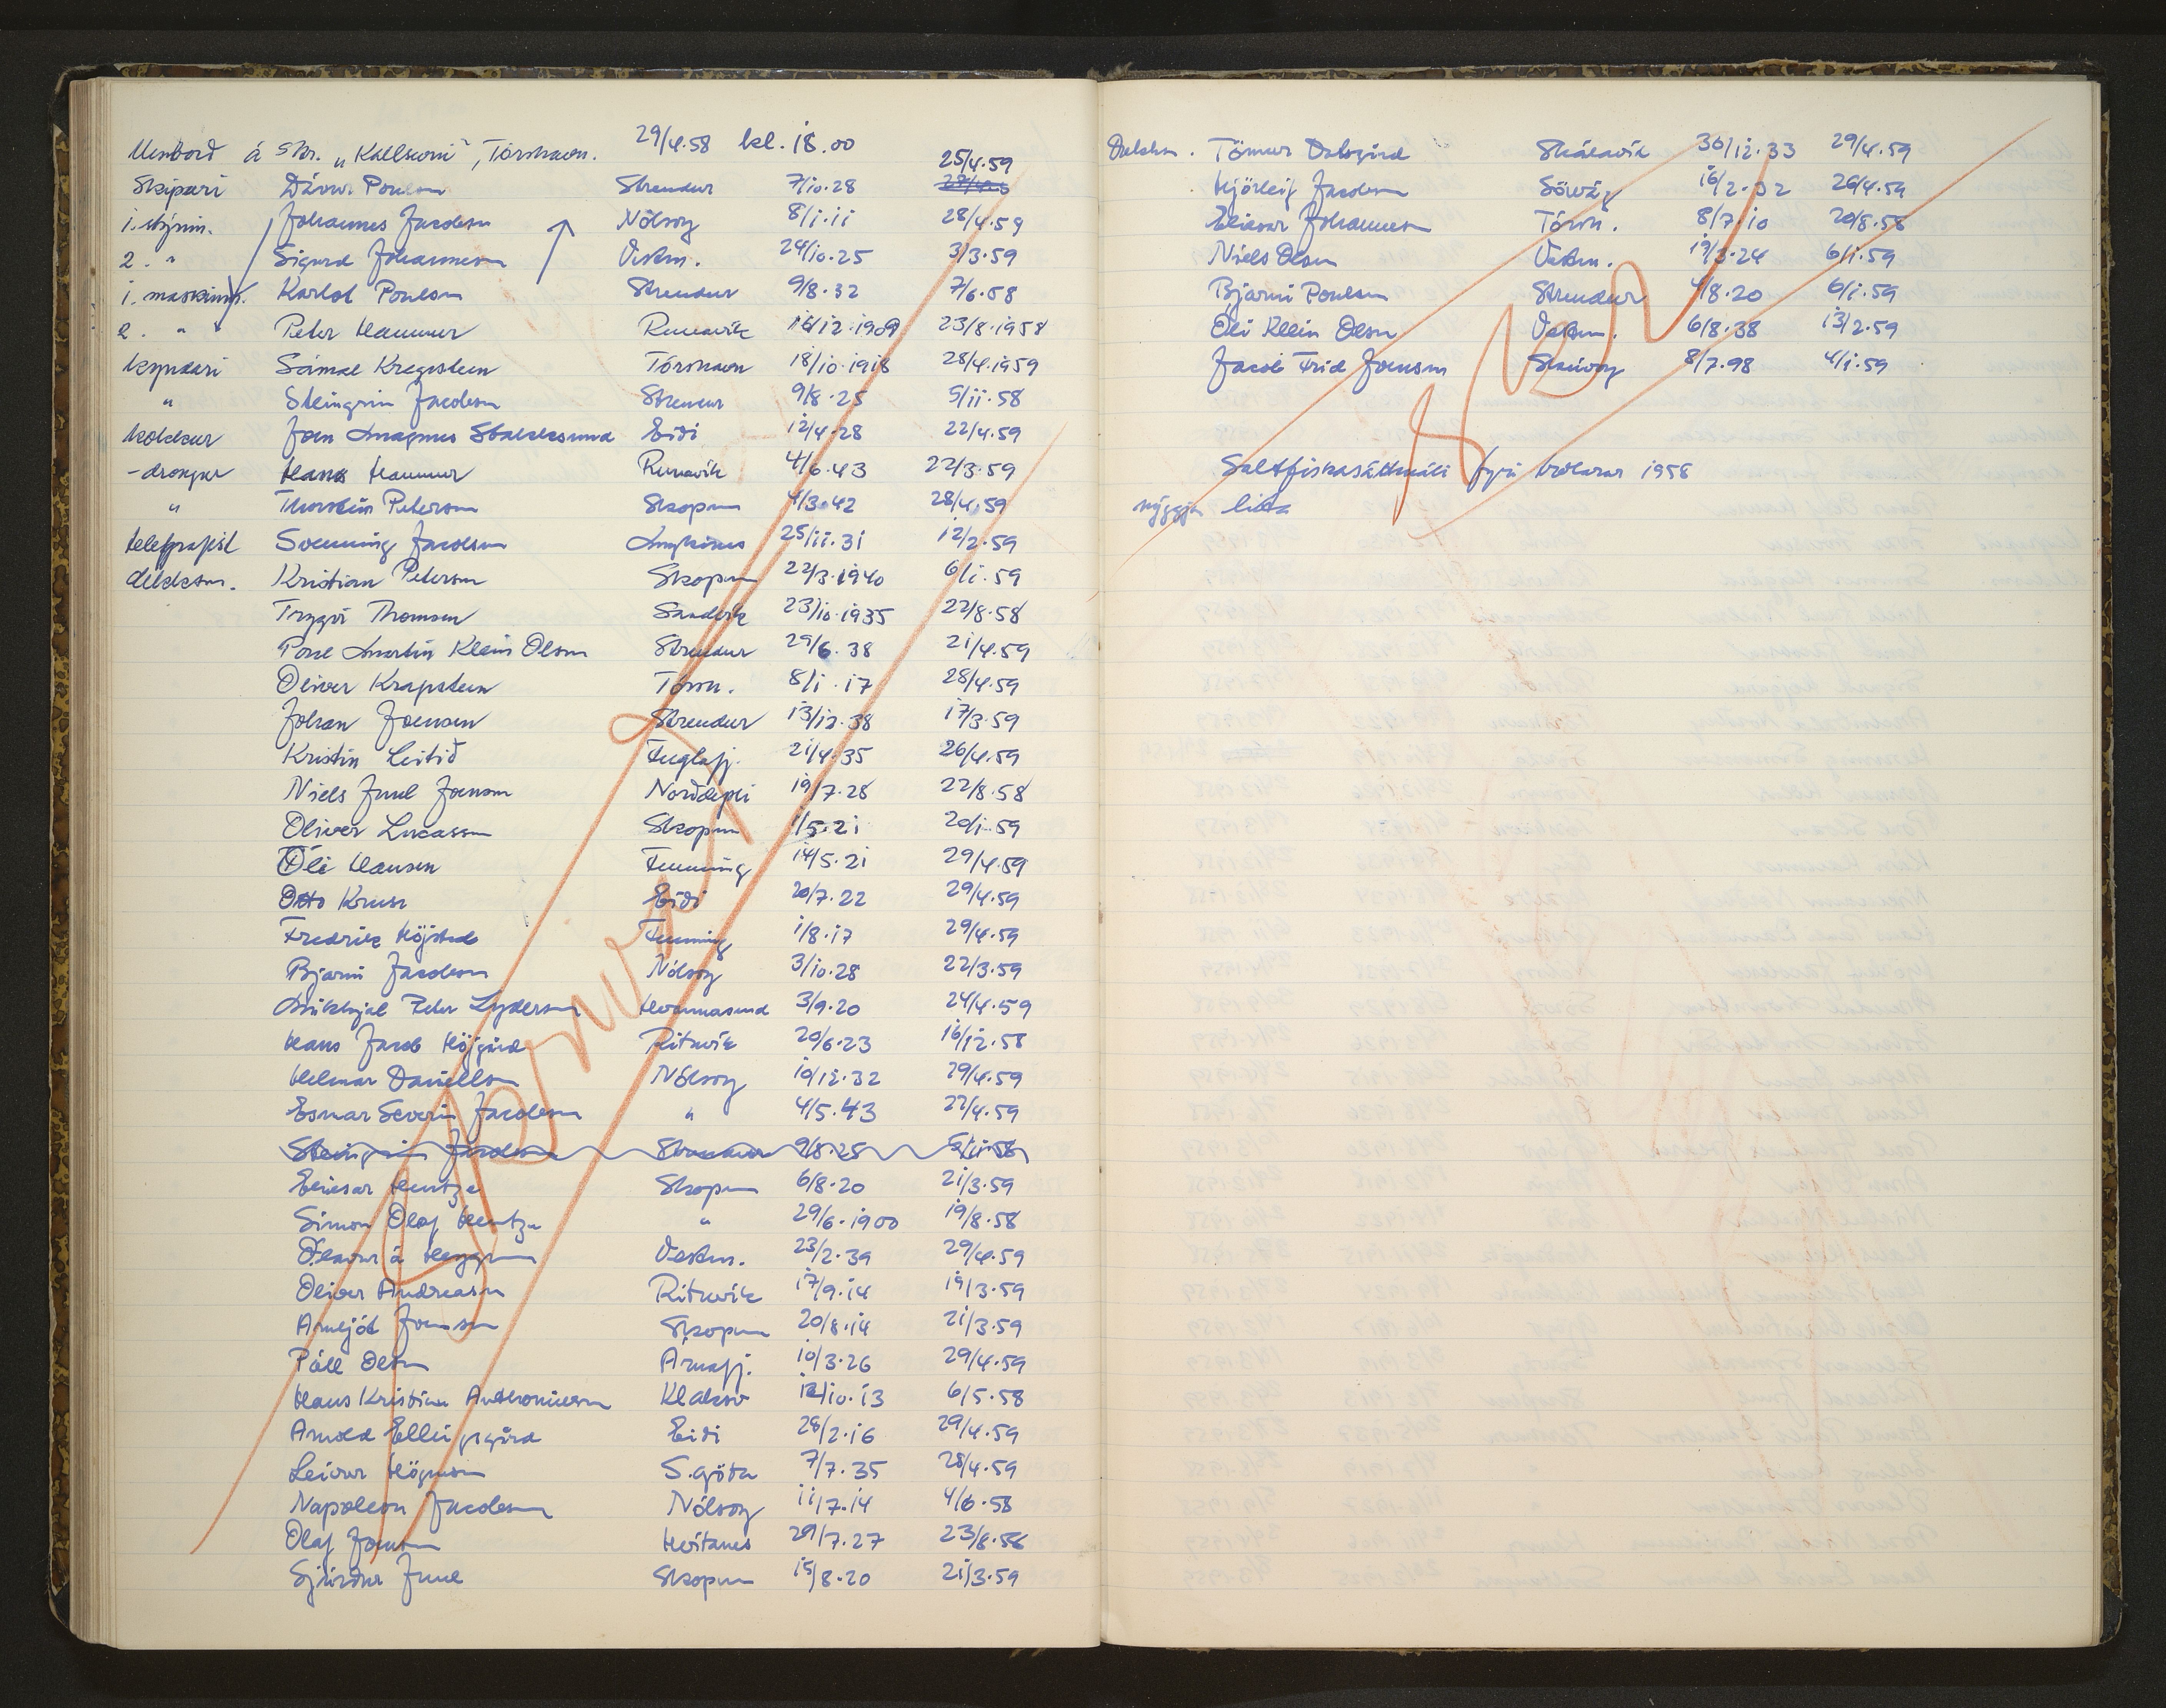 Umborð á skr. "Kallsevni", Tórshavn. 29/4.58 kl. 18.00
25/4.59
Skipari Dávur Poulsen Strendur 7/10.28
1. stýrim. Johannes Jacobsen Nólsoy 8/1.11 28/4.59
2. " Sigurd Johannesen Vestm. 24/10.25 3/3.59
1. maskinm. Karlot Poulsen Strendur 9/8.32 7/6.58
2. " Peter Hammer Runavík 16/12.1909 23/8.1958
kyndari Sámal Kragesteen Tórshavn 18/10.1918 28/4.1959
" Steingrim Jacobsen Strendur 9/8.25 5/11.58
kokkur Joen Magnus Stakksund Eidi 12/4.28 22/4.59
-drongur Hans Hammer Runavík 4/6.43 22/3.59
" Thorstein Petersen Skopun 4/3.42 28/4.59
telegrafist Soenning Jacobsen Mykines 25/11.31 12/2.59
dekksm. Kristian Petersen Skopun 22/3.1940 6/1.59
Trygvi Thomsen Sandvík 23/10.1935 22/8.58
Poul Martin Klein Olsen Strendur 29/6.38 21/4.59
Oliver Kragesteen Tórsh. 8/1.17 28/4.59
Johan Joensen Strendur 13/12.38 17/3.59
Kristin Leitið Fuglafj. 21/4.35 26/4.59
Niels Juul Joensen Norðdepli 19/7.28 22/8.58
Oliver Lucassen Skopun 1/5.21 20/1.59
Óli Hansen Funning 14/5.21 29/4.59
Otto Kruse Eidi 20/7.22 29/4.59
Fredrik Höjsted Funning 1/8.17 29/4.59
Bjarni Jacobsen Nólsoy 3/10.28 22/3.59
Mikkjal Peter Lydersen Hvannasund 3/9.20 24/4.59
Hans Jacob Höjgård Rituvík 20/6.23 16/12.58
Helmar Daniellsen Nólsoy 10/12.32 29/4.59
Esmar Severin Jacobsen " 4/5.43 22/4.59
Steingrim Jacobsen Strendur 9/8.25 5/11.58
Eliesar Hentze Skopun 6/8.20 21/3.59
Simon Olaf Hentze " 29/6.1900 19/8.58
Ólavur á Heyggum Vestm. 23/2.39 29/4.59
Oliver Andreasen Rituvík 17/9.14 19/3.59
Arnljót Joensen Skopun 20/8.14 21/3.59
Páll Olsen Árnafj. 10/3.26 29/4.59
Hans Kristian Anthoniesen Klaksv 12/10.13 6/5.58
Arnold Ellingsgård Eidi 28/2.16 29/4.59
Leivur Högnesen S.göta 7/7.35 28/4.59
Napoleon Jacobsen Nólsoy 11/7.14 4/6.58
Olaf Joensen Hvítanes 29/7.27 23/8.58
Sjúrður Juul Skopun 15/8.20 21/3.59
Avmynstr
Dekksm. Tömur Dalsgård Skálavík 30/12.33 29/4.59
Hjörleif Jacobsen Sörvág 16/2.02 26/4.59
Eliesar Johannesen Tórsh. 8/7.10 20/8.58
Niels Olsen Vestm. 19/3.24 6/1.59
Bjarni Poulsen Strendur 4/8.20 6/1.59
Óli Klein Olsen Vestm. 6/8.38 13/2.59
Jacob Frid Joensen Skúvoy 8/7.98 4/1.59
Saltfiskasáttmáli fyri trolarar 1958
nýggja lista